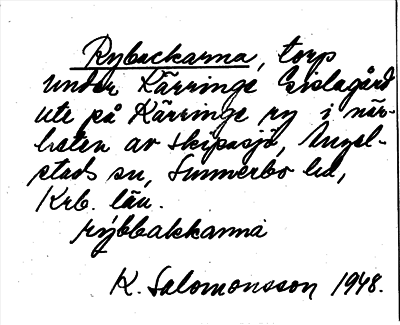 Rybackarna, torp
under Kärringe Gislagård
ute på Kärringe ry i när-
heten av Skipasjö, Angel-
stads sn, Sunnerbo hd,
Krb. län.
rýbbakkanna
K. Salomonsson 1948.